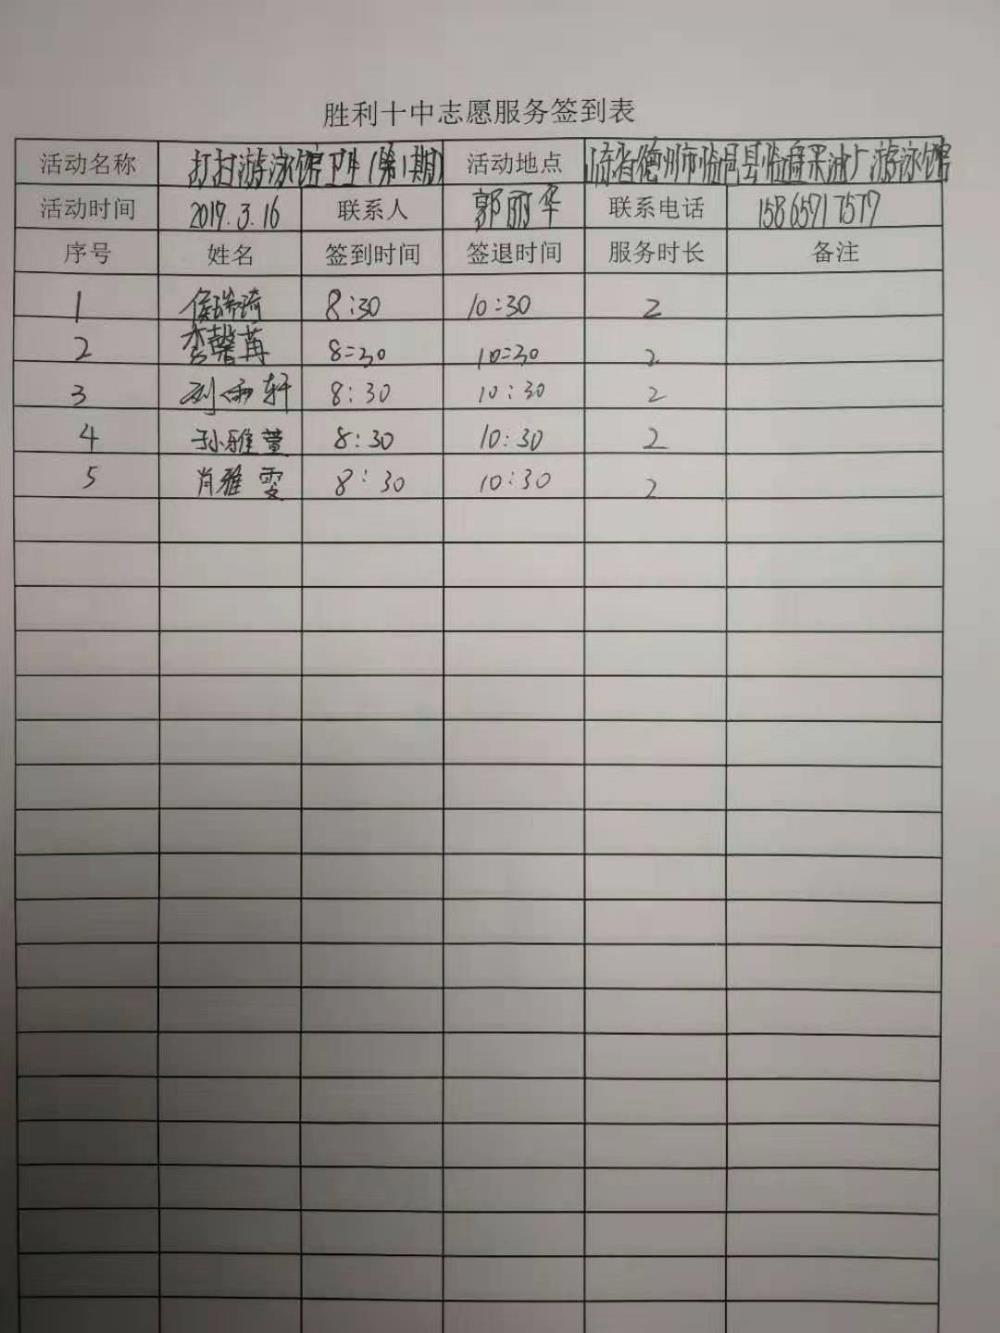 胜利十中志愿服务签到表
活动名称 打扫游泳馆卫生(第1期) 活动地点 山东省德州市临邑县临盘采油厂游泳馆
活动时间 2019.3.16 联系人 郭丽华 联系电话 15865717577
序号 姓名 签到时间 签退时间 服务时长 备注
1 侯瑞琦 8:30 10:30 2
2 李馨苒 8:30 10:30 2
3 刘雨轩 8:30 10:30 2
4 孙雅萱 8:30 10:30 2
5 肖雅雯 8:30 10:30 2